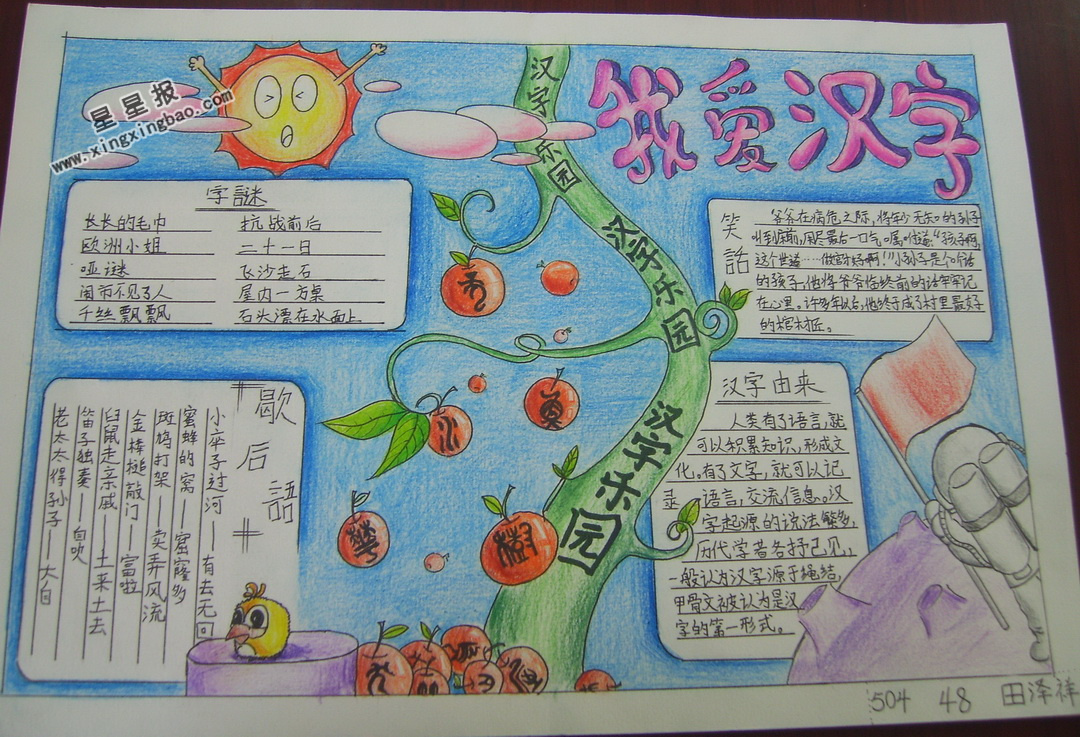 我爱汉字
星星报
www.xingxingbao.com
汉字乐园
汉字乐园
汉字乐园
字謎
长长的毛巾 抗战前后
欧洲小姐 二十一日
哑谜 飞沙走石
闹市不见了人 屋内一方桌
千丝飘飘 石头漂在水面上
笑話
爷爷在病危之际,将年少无知的孙子
叫到床前,用尽最后一口气嘱咐道:“孩子啊,
这个世道……做官好啊!”小孙子是个听话
的孩子,他将爷爷临终前的话牢牢记
在心里。许多年以后,他终于成了村里最好
的棺材匠。
歇后語
小卒子过河——有去无回
蜜蜂的窝——窟窿多
斑鸠打架——卖弄风流
金棒槌敲门 富啦
臼鼠走亲戚——土来土去
笛子独奏——自吹
老太太得孙子——大自
汉字由来
人类有了语言,就
可以积累知识,形成文
化。有了文字,就可以记
录语言,交流信息。汉
字起源的说法繁多,
历代学者各抒己见,
一般认为汉字源于绳结,
甲骨文被认为是汉
字的第一形式。
504 48 田泽祥